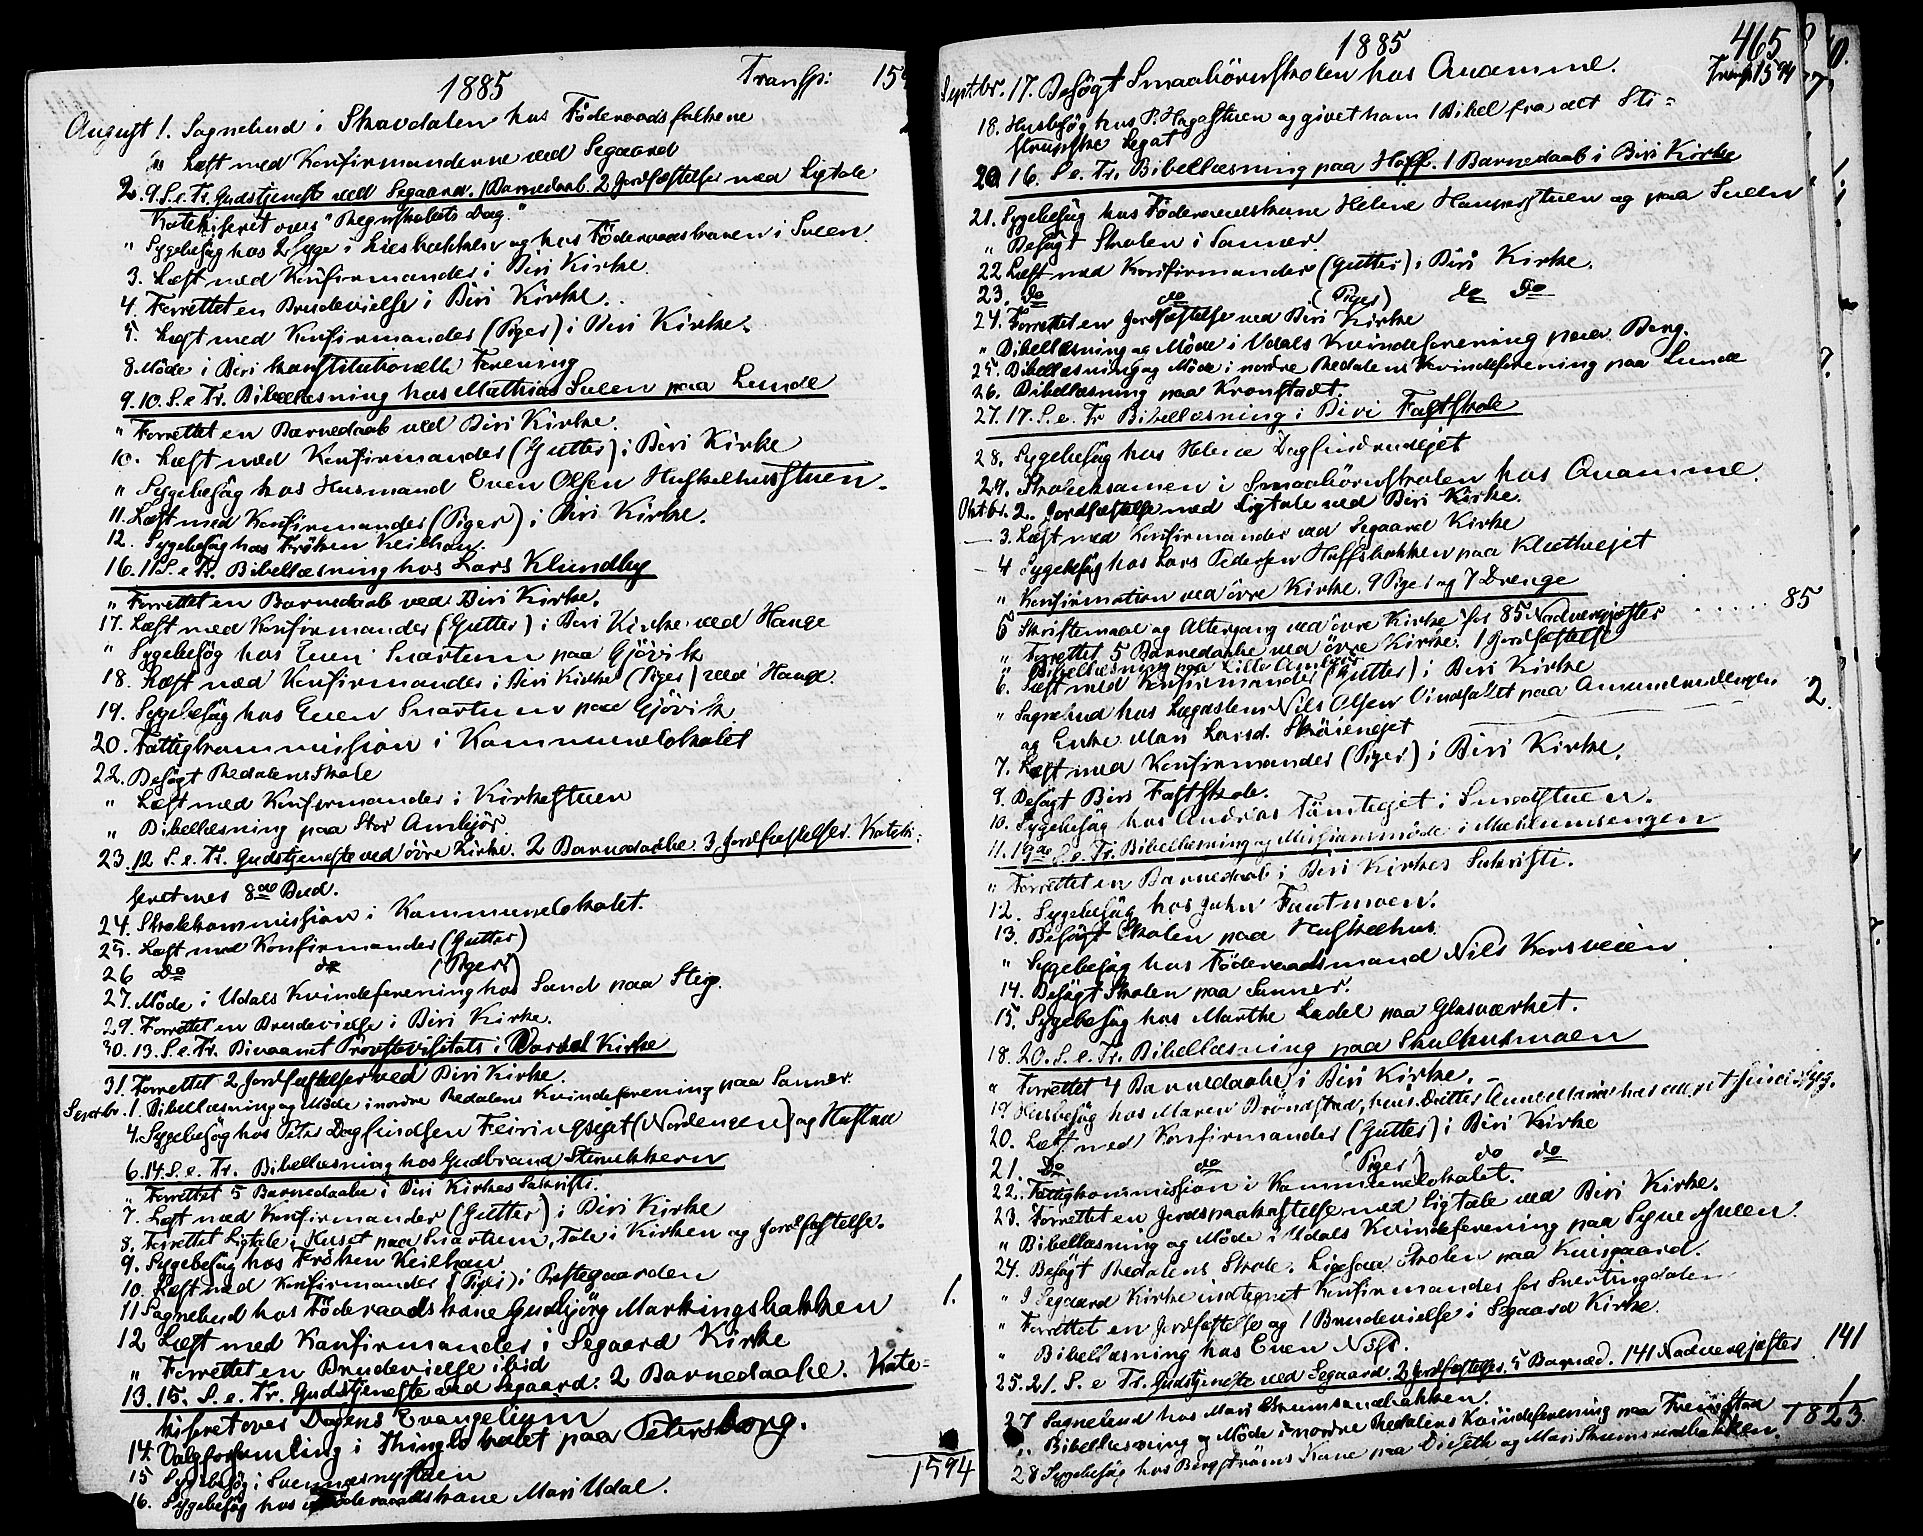 1885 Transp: 159
August 1. Sognebud i Skavdalen hos Föderaadsfolkene
" Læst med Konfirmanderne ved Segaard
2. 9. S. e. Tr. Gudstjeneste ved Segaard. 1 Barnedaab. 2 Jordfæstelser med Ligtale
Katekiseret over "Regnskabets Dag."
" Sygebesøg hos 2 Syge i Liesbakken og hos Föderaadskonen i Sveen
3. Læst med Konfirmander i Biri Kirke.
4. Forrettet en Brudevielse i Biri Kirke.
5. Læst med Konfirmander (Piger) i Biri Kirke.
8. Möde i Biri konstitutionelle Forening
9. 10. S. e Tr. Bibellæsning hos Mathias Sveen paa Lunde
" Forrettet en Barnedaab ved Biri Kirke.
10. Læst med Konfirmander (Gutter) i Biri Kirke
" Sygebesøg hos Husmand Even Olsen Huskelhusstuen.
11. Læst med Konfirmander (Piger) i Biri Kirke.
12. Sygebesøg hos Fröken Keilhau.
16. 11 S. e Tr. Bibellæsning hos Lars Klundby
" Forrettet en Barnedaab ved Biri Kirke.
17. Læst med Konfirmander (Gutter) i Biri Kirke ved Hauge
" Sygebesög hos Even Svartum paa Gjövik
18. Læst med Konfirmander i Biri Kirke (Piger) ved Hauge.
19. Sygebesøg hos Even Svartum paa Gjövik
20. Fattigkommission i Kommunelokalet
22. Besögt Redalens Skole
" Læst med Konfirmander i Kirkestuen
" Bibellæsning paa Stor Amlijör
23. 12 S. e. Tr. Gudstjeneste ved övre Kirke. 2 Barnedaabe. 3 Jordfæstelser. Kateki-
seret over 8de Bud.
24. Skolekommission i Kommunelokalet.
25. Læst med Konfirmander (Gutter)
26 Do do (Piger)
27. Möde i Udals Kvindeforening hos Sand paa Stig.
29. Forrettet en Brudevielse i Biri Kirke.
30. 13. S. e. Tr. Bivaanet Provstevisitats i Vardal Kirke
31. Forrettet 2 Jordfæstelser ved Biri Kirke.
Septbr. 1. Bibellæsning og Möde i nordre Redalens Kvindeforening paa Sanner.
4. Sygebesøg hos Peter Dagfindsen Feiringsejet (Nordengen) og Hufstad
6. 14. S. e. Tr. Bibellæsning hos Gudbrand Stenbekkern
" Forrettet 5 Barnedaabe i Biri Kirkes Sakristi.
7. Læst med Konfirmander (Gutter) i Biri Kirke
8. Forrettet Ligtale i Huset paa Svartum, Tale i Kirken og Jordfæstelse.
9. Sygebesøg hos Fröken Keilhau
10. Læst med Konfirmander (Piger) i Prestegaarden
11 Sognebud hos Föderaadskone Gudbjörg Markingsbakken 1.
12 Læst med Konfirmander i Segaard Kirke
" Forrettet en Brudevielse ibid
13. 15. S. e. Tr. Gudstjeneste ved Segaard. 2 Barnedaabe. Kate-
kiseret over Dagens Evangelium
14. Valgforsamling i Thinglokalet paa Petersborg.
15 Sygebesög i Svennæsnystuen
16. Sygebesøg hos Föderaadskone Mari Udal.
1594
1885 465
Septbr. 17. Besögt Smaabörnskolen hos Onsumme. Transp 1594
18. Husbesøg hos P. Hagastuen og givet ham 1 Bibel fra det Sti-
strupske Legat
20 16. S. e. Tr. Bibellæsning paa Hoff. 1 Barnedaab i Biri Kirke
21. Sygebesøg hos Föderaadskone Helene Hansestuen og paa Sveen
" Besøgt Skolen i Sanner
22 Læst med Konfirmander (Gutter) i Biri Kirke.
23. Do do (Piger) do Do
24. Forrettet en Jordfæstelse ved Biri Kirke
" Bibellæsning og Möde i Udals Kvindeforening paa Berg.
25. Bibellæsning og Möde i nordre Redalens Kvindeforening paa Lunde
26. Bibellæsning paa Kronstadt.
27. 17. S. e. Tr Bibellæsning i Biri Fastskole
28. Sygebesøg hos Helene Dagfindsrudejet
29. Skoleeksamen i Smaabörnskolen hos Onsumme
Oktbr. 2. Jordfæstelse med Ligtale ved Biri Kirke.
3. Læst med Konfirmander ved Segaard Kirke
4 Sygebesøg hos Lars Pedersen Hoffsbakken paa Klethejet
" Konfirmation ved övre Kirke. 9 Piger og 7 Drenge
5 Skriftemaal og Altergang ved övre Kirke for 85 Nadvergjæster ..... 85
" Forrettet 5 Barnedaabe ved övre Kirke. 1 Jordfæstelse
" Bibellæsning paa Lille Amlijör
6. Læst med Konfirmander (Gutter) i Biri Kirke
" Sognebud hos Lægdslem Nils Olsen Vindfaldet paa Amundrudengen 2.
og Enke Mari Larsd. Skräienejet
7. Læst med Konfirmander (Piger) i Biri Kirke.
9. Besøgt Biri Fastskole.
10. Sygebesøg hos Andreas Tömtejet i Smedstuen.
11. 19de S. e. Tr. Bibellæsning og Missionsmöde i Mæhlumsengen
" Forrettet en Barnedaab i Biri Kirkes Sakristi.
12. Sygebesøg hos John Fautmoen.
13. Besøgt Skolen paa Huskelhus
" Sygebesøg hos Föderaadsmand Nils Korsveien
14. Besøgt Skolen paa Sanner.
15. Sygebesøg hos Marthe Ladel paa Glasværket.
18. 20. S. e. Tr. Bibellæsning paa Skulhusmoen
" Forrettet 4 Barnedaabe i Biri Kirke.
19. Husbesøg hos Maren Bröndstad, hvis Datter Anne Marie
20. Læst med Konfirmander (Gutter) i Biri Kirke
21. Do do (Piger) do do
22. Fattigkommission i Kommunelokalet.
23. Forrettet en Jordpaakastelse med Ligtale ved Biri Kirke.
" Bibellæsning og Möde i Udals Kvindeforening paa Sygestuen.
24. Besøgt Redalens Skole. Ligesaa Skolen paa Kvisgaard.
" I Segaard Kirke indtegnet Konfirmander for Snertingdalen
" Forrettet en Jordfæstelse og 1 Brudevielse i Segaard Kirke.
" Bibellæsning hos Even Nöss.
25. 21. S. e Tr. Gudstjeneste ved Segaard. 2 Jordfæstelser. 5 Barned. 141 Nadvergjæster 141
27 Sognebud hos Mari Skumsrudbakken. 1
" Bibellæsning og Möde i nordre Redalens Kvindeforening paa Frenstad 1823.
28 Sygebesøg hos Bergströms Kone paa Vigseth og Mari Skumsrudbakken.